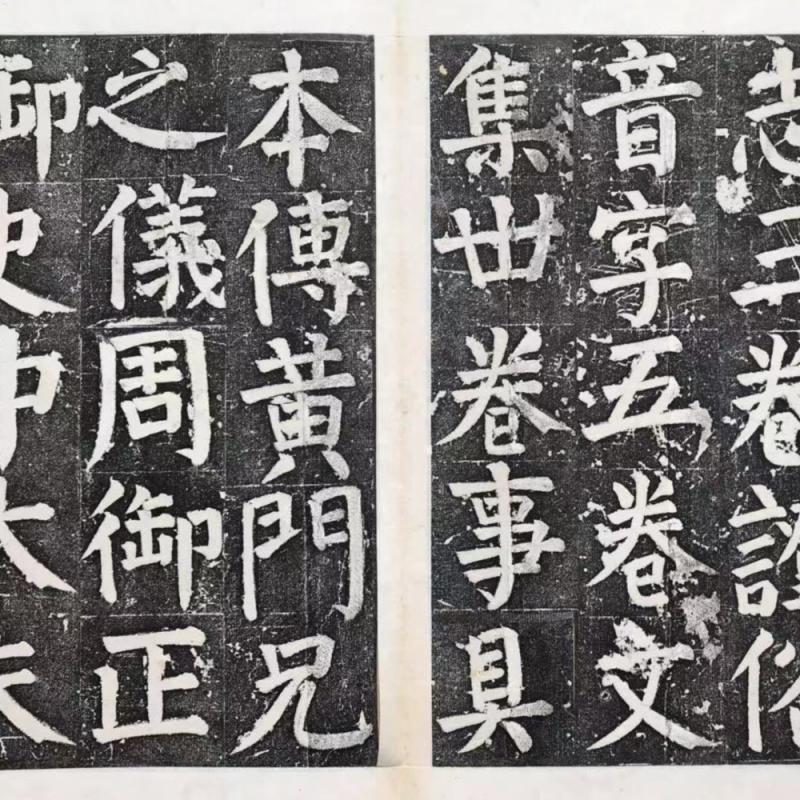 志三卷證俗
音字五卷文
集丗卷事具
本傳黃門兄
之儀周御正
御史中大夫